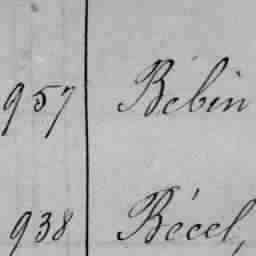 957 Bébin
938 Bécel,